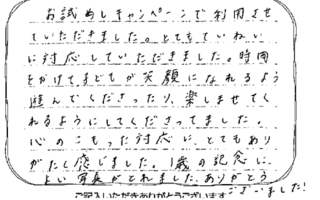 お試めしキャンペーンで利用させ
ていただきました。とてもていねい
に対応していただきました。時間
をかけて子どもが笑顔になれるよう
遊んでくださったり、楽しませてく
れるようにしてくださってました。
心のこもった対応に、とてもあり
がたく感じました。1歳の記念に、
よい写真がとれました。ありがとう
ございました!
ご記入いただきありがとうございます